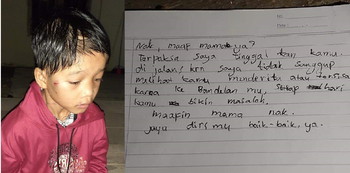 Nak, maaf mama ya?
Terpaksa saya tinggal kan kamu
di jalan, krn saya tidak sanggup
melihat kamu menderita atau
karna ke Bandelan mu, setiap hari
kamu bikin masalah.
maafin mama nak.
dirimu baik-baik ya.